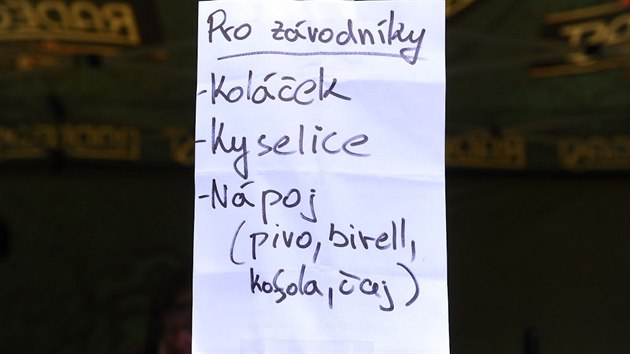 Pro závodníky
-Koláček
-Kyselice
-Nápoj
(pivo, birell,
kofola, čaj)
RADEGAST